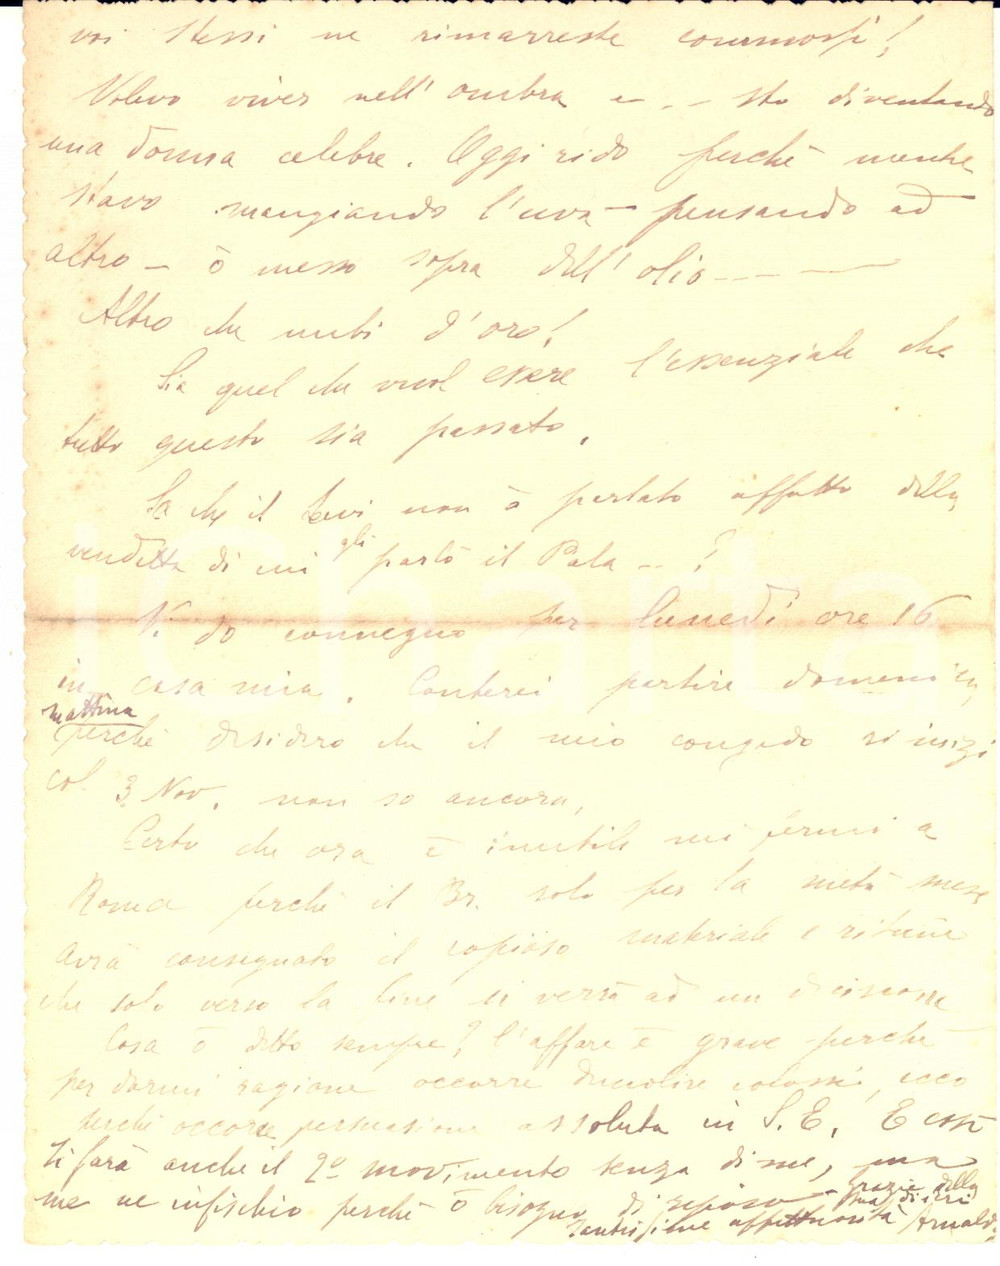 voi stessi ne rimarreste commossi!
Volevo viver nell'ombra e -- sto diventando
una donna celebre. Oggi rido perchè mentre
stavo mangiando l'uva - pensando ad
altro - ò messo sopra dell'olio ---
Altro che nubi d'oro!
Sia quel che vuol essere l'essenziale che
tutto questo sia passato.
Sa che il Levi non à parlato affatto della
vendetta di cui gli parlò il Pala --?
V. do convegno per lunedì ore 16
in casa mia. Conterei partire domenica
mattina
perchè desidero che il mio congedo si inizi
col 3 Nov. non so ancora,
Certo che ora è inutile mi fermi a
Roma perchè il Br. solo per la metà mese
avrà consegnato il copioso materiale e ritiene
che solo verso la fine si verrà ad una decisione
Cosa ò detto sempre? l'affare è grave perchè
per darmi ragione occorre demolire colossi, ecco
perchè occorre persuasione assoluta in S.E. E così
si farà anche il 2º movimento senza di me, ma
me ne infischio perchè ò bisogno di riposo - grazie della
sua di ieri
affettuosità Arnald
iCharta